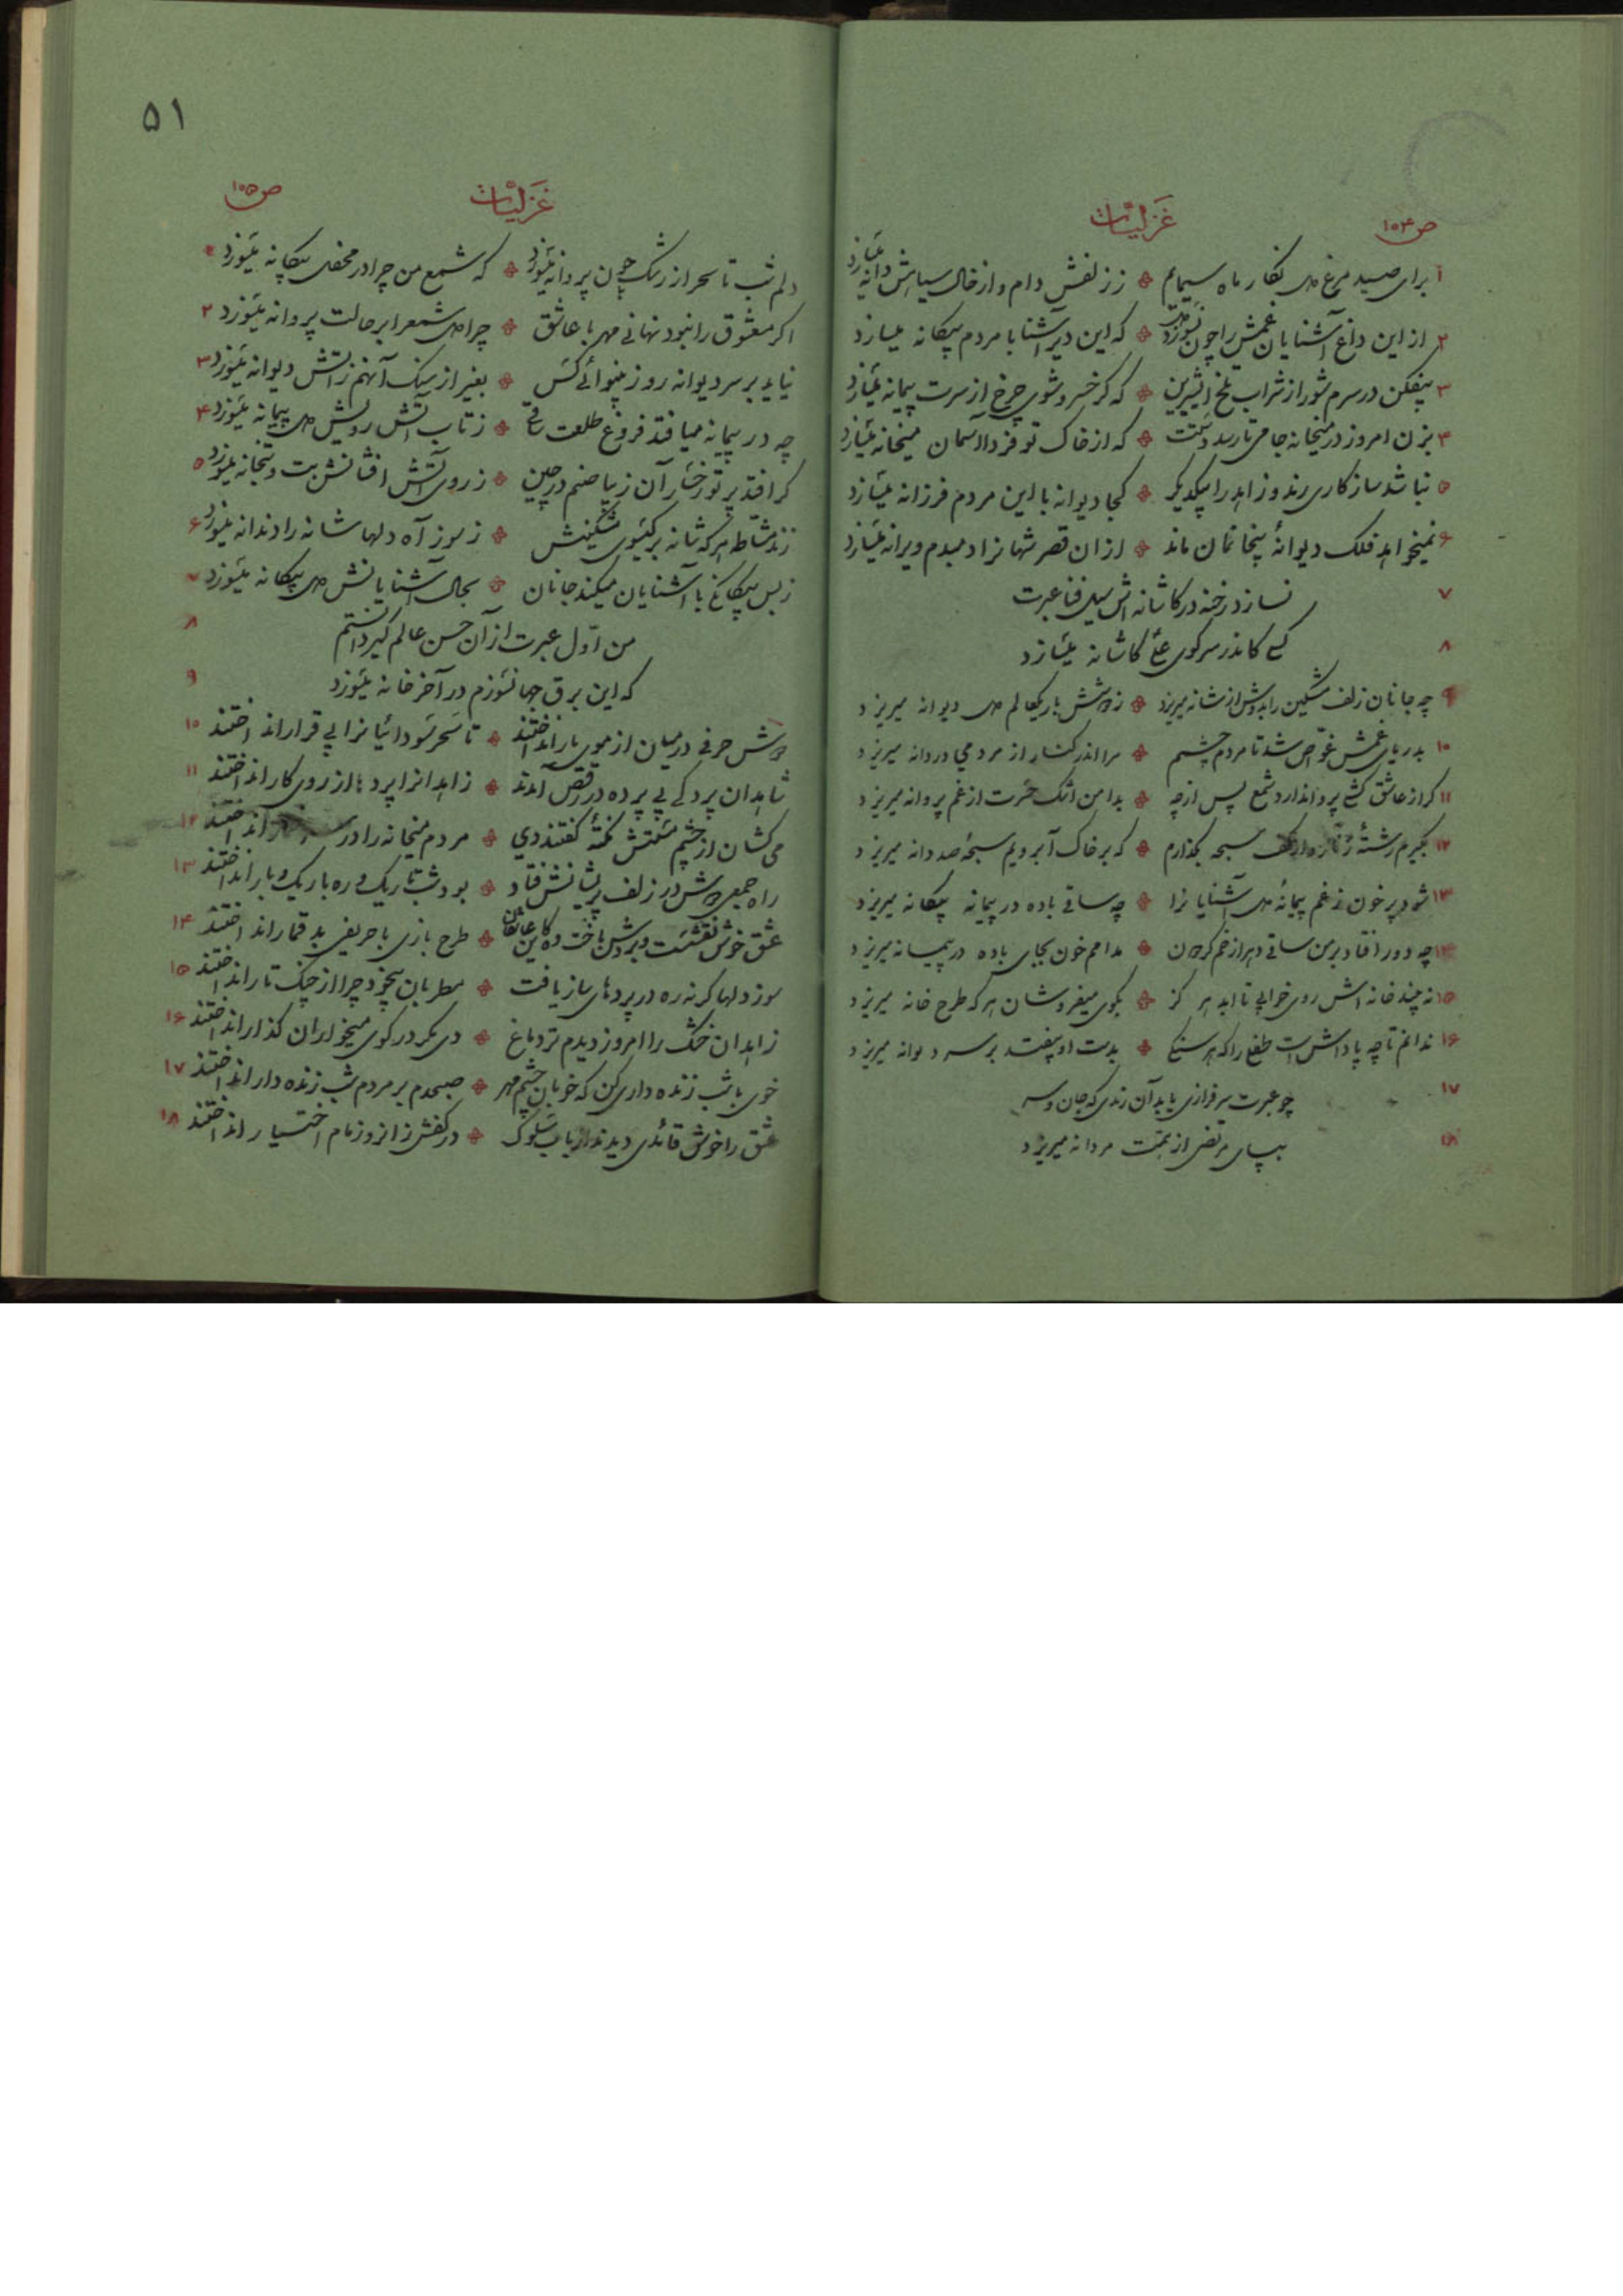 ص ۱۰۴
غزلیات
۱ برای صید مرغ دل نگار ماه سیمایم ززلفش دام و از خال سیاهش دانه میسازد
۲ از این داغ آشنایان غمش را چون نسوزد دل که این دیر آشنا با مردم بیگانه میسازد
۳ بیفکن در سرم شور از شراب تلخ ای شیرین که گر خسرو شوی چرخ از سرت پیمانه میسازد
۴ بزن امروز در میخانه جامی تا رسد دستت که از خاک تو فردا آسمان میخانه میسازد
۵ نباشد سازگاری رند و زاهد را بیکدیگر کجا دیوانه با این مردم فرزانه میسازد
۶ نمیخواهد فلک دیوانهٔ بیخانمان ماند از آن قصر شهانرا دمبدم ویرانه میسازد
۷ نسازد رخنه در کاشانه اش سیل فنا عبرت
۸ کسی کاندر سر کوی علی کاشانه میسازد
۹ چه جانان زلف مشکین را بدوش از شانه میریزد زدوشش بار یکعالم دل دیوانه میریزد
۱۰ بدریای غمش غوّاص شد تا مردم چشمم مرا اندر کنار از مردمی دردانه میریزد
۱۱ گر از عاشق کشی پروا ندارد شمع پس از چه بدامن اشک حسرت از غم پروانه میریزد
۱۲ بگیرم رشتهٔ زنار و از کف سبحه بگذارم که بر خاک آبرویم سبحهٔ صد دانه میریزد
۱۳ شود پر خون زغم پیمانهٔ دل آشنایانرا چه ساقی باده در پیمانه بیگانه میریزد
۱۴ چه دور افتاد بر من ساقی دهر از خم گردون مدامم خون بجای باده در پیمانه میریزد
۱۵ نه بیند خانه اش روی خرابی تا ابد هر گز بکوی میفروشان هر که طرح خانه میریزد
۱۶ ندانم تا چه پاداش است طفلی را که هر سنگی بدست او بیفتد بر سر دیوانه میریزد
۱۷ چو عبرت سرفرازی یابد آن رندی که جان و سر
۱۸ بپای مرتضی از همّت مردانه میریزد
۵۱
ص ۱۰۵
غزلیات
دلم شب تا سحر از رشک چون پروانه میسوزد که شمع من چرا در محفل بیگانه میسوزد ۱
اگر معشوق را نبود نهانی مهر با عاشق چرا دل شمع را بر حالت پروانه میسوزد ۲
نیاید بر سر دیوانه روز بینوائی کس بغیر از سنگ آنهم زآتش دیوانه میسوزد ۳
چه در پیمانه میافتد فروغ طلعت ساقی زتاب آتش رویش دل پیمانه میسوزد ۴
گر افتد پرتو رخسار آن زیبا صنم در چین زروی آتش افشانش بت و بتخانه میسوزد ۵
زند مشّاطه هر گه شانه بر گیسوی مشکینش زسوز آه دلها شانه را دندانه میسوزد ۶
زبس بیگانگی با آشنایان میکند جانان بحال آشنایانش دل بیگانه میسوزد ۷
من اوّل عبرت از آن حسن عالم گیر دانستم ۸
که این برق جهانسوزم در آخر خانه میسوزد ۹
دوش حرفی در میان از موی یار انداختند تا سحر سودائیانرا بی قرار انداختند ۱۰
شاهدان پردگی بی پرده در رقص آمدند زاهدانرا پرده از روی کار انداختند ۱۱
می کشان از چشم مستش نکتهٔ گفتند دی مردم میخانه را در انداختند ۱۲
راه جمعی دوش در زلف پریشانش فتاد بود شب تاریک و ره باریک و بار انداختند ۱۳
عشق خوش نقشست و بردش باخت وه کاین عاشقان طرح بازی با حریفی بد قمار انداختند ۱۴
سوز دلها گر نه ره در پردهای ساز یافت مطربان بیخود چرا از چنگ تار انداختند ۱۵
زاهدان خشک را امروز دیدم تر دماغ دی مگر در کوی میخواران گذار انداختند ۱۶
خوی با شب زنده داری کن که خوبان چشم مهر صبحدم بر مردم شب زنده دار انداختند ۱۷
عشق را خوش قائدی دیدند ارباب سلوک در کفش زانرو زمام اختیار انداختند ۱۸